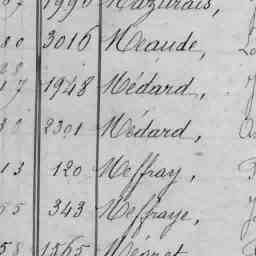 1990 Mazurais,
80 3016 Meaude,
17 1948 Médard,
30 2301 Médard,
13 120 Meffray,
55 343 Meffraye,
58 1565